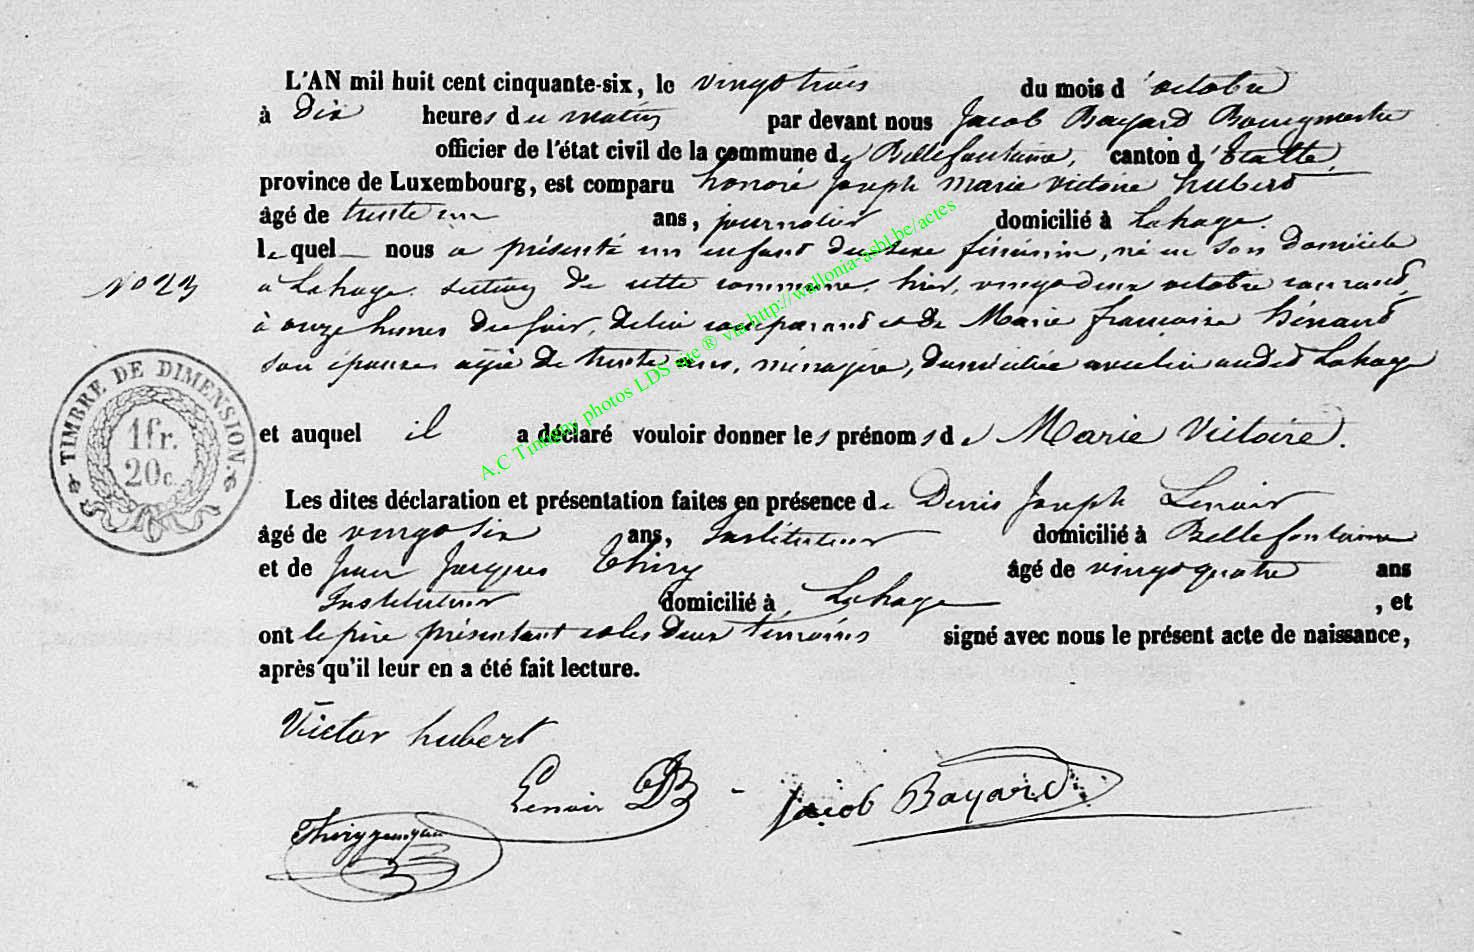 L'AN mil huit cent cinquante-six, le vingt trois du mois d'octobre
à Dix heures du matin par devant nous Jacob Bayard Bourgmestre
officier de l'état civil de la commune de Bellefontaine, canton d'Etalle,
province de Luxembourg, est comparu honoré Joseph Marie Victoire hubert
âgé de trente un ans, journalier domicilié à Lahage.
lequel nous a présenté un enfant du sexe féminin, né en son domicile
No 23
à Lahage section de cette commune, hier, vingt deux octobre courant,
à onze heures du soir, de lui comparant et de Marie françoise hénaud
son épouse agée de trente ans, ménagère, domiciliée avec lui audit Lahage
TIMBRE DE DIMENSION.
1 fr.
20 c.
et auquel il a déclaré vouloir donner les prénoms de Marie Victoire.
Les dites déclaration et présentation faites en présence de Denis Joseph Lenoir
âgé de vingt six ans, Instituteur domicilié à Bellefontaine
et de Jean Jacques Thiry âgé de vingt quatre ans
Instituteur domicilié à Lahage , et
ont le père présentant et les deux témoins signé avec nous le présent acte de naissance,
après qu'il leur en a été fait lecture.
Victor hubert
Lenoir DJ - Jacob Bayard
Thiry
A.C Tintigny photos LDS site ® via http://wallonia-asbl.be/actes